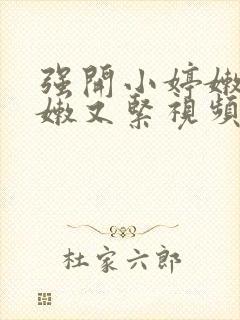 强開小婷嫩
嫩又緊視頻
杜家六郎